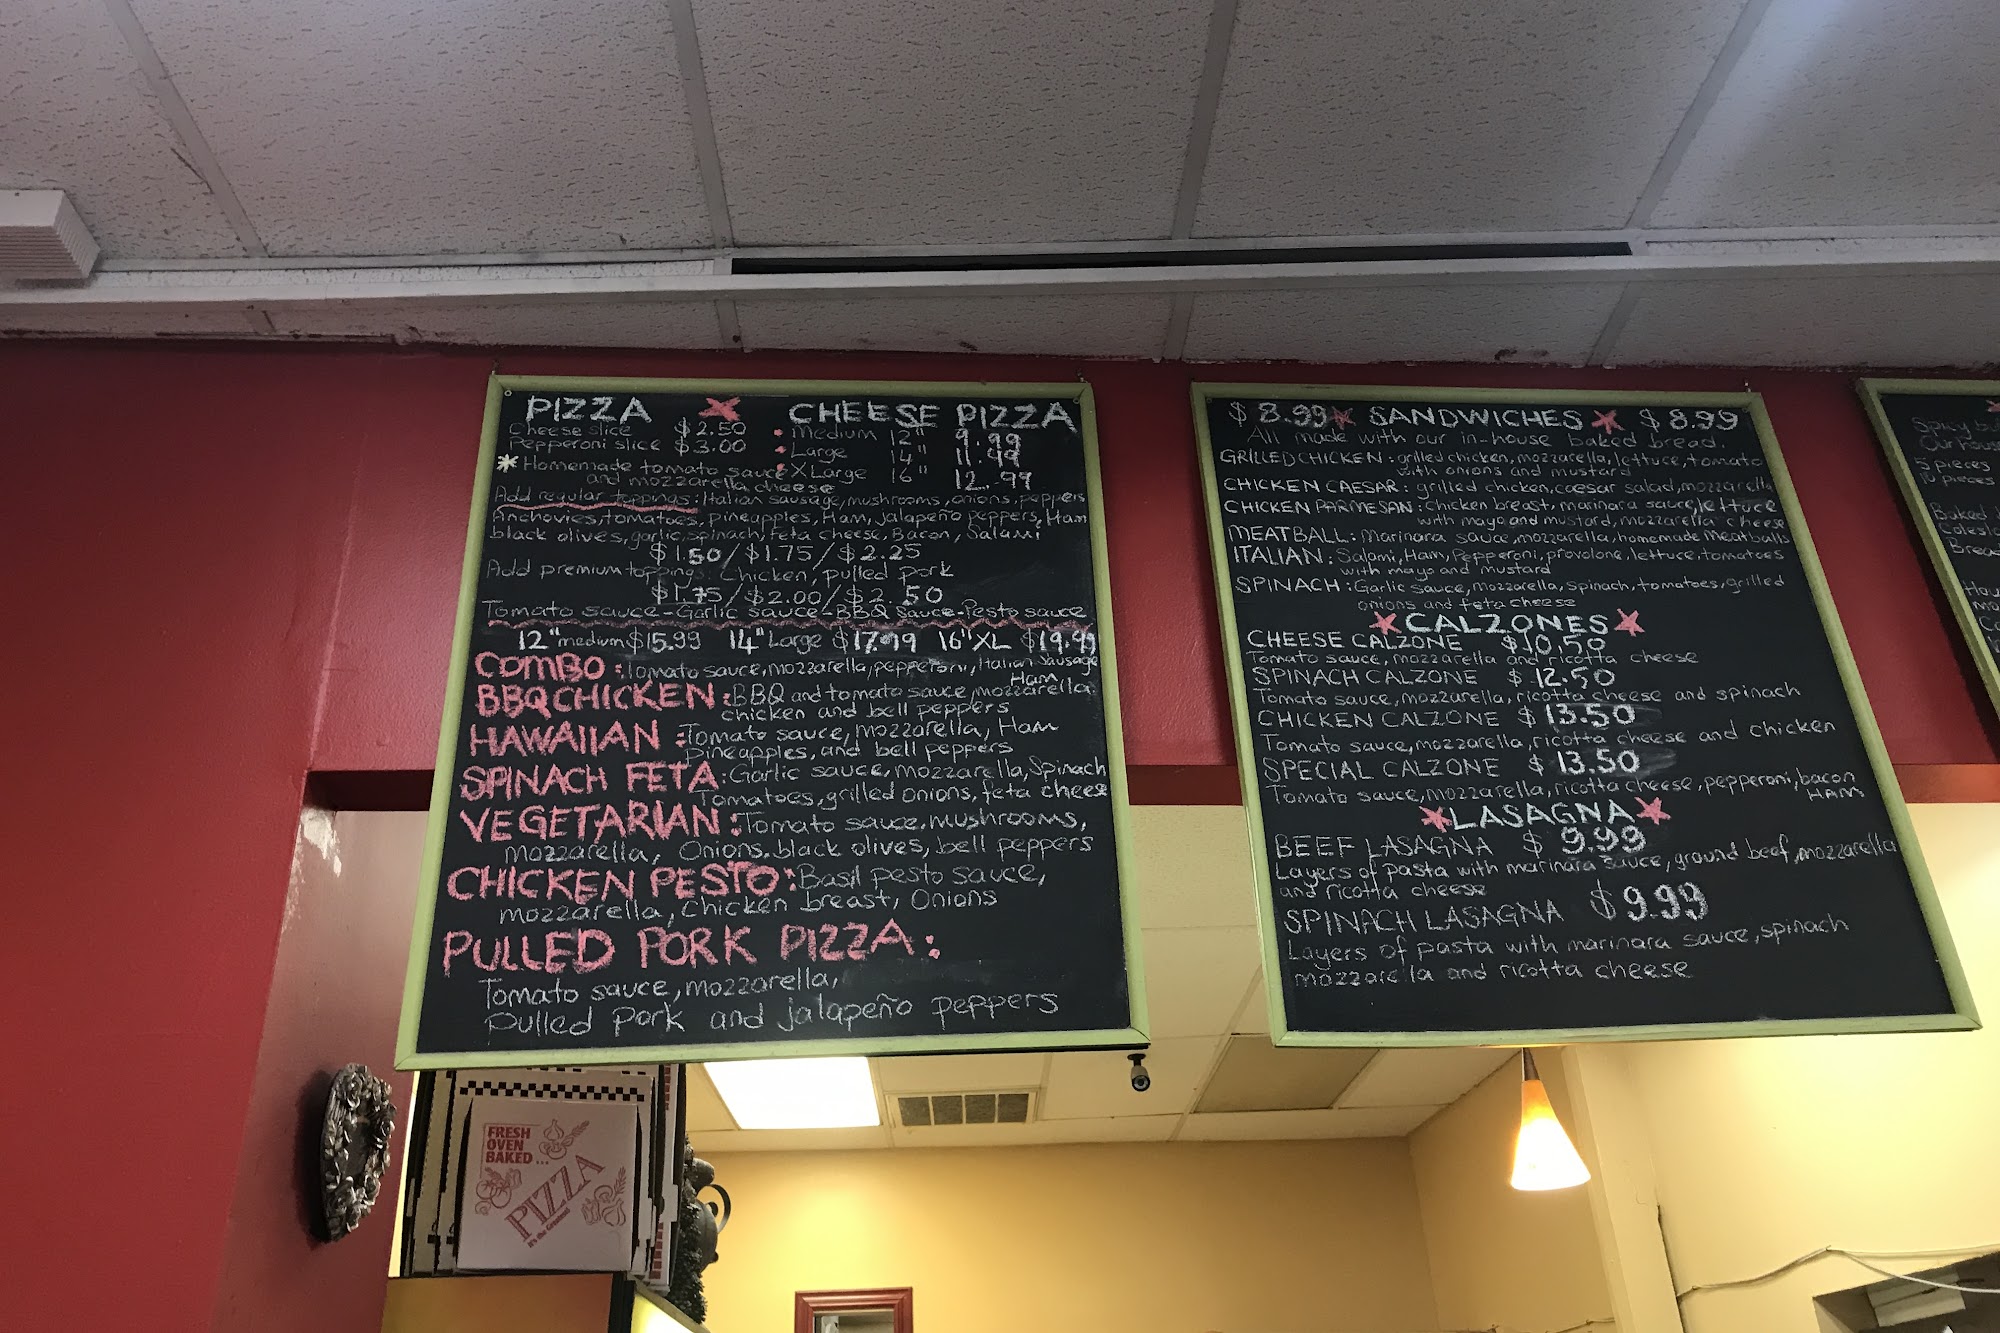 PIZZA CHEESE PIZZA
Cheese slice $2.50 Medium 12" 9.99
Pepperoni slice $3.00 Large 14" 11.99
* Homemade tomato sauce X Large 16" 12.99
and mozzarella cheese
Add regular toppings: Italian sausage, mushrooms, onions, peppers
Anchovies, tomatoes, pineapples, Ham, jalapeño peppers, Ham
black olives, garlic, spinach, Feta cheese, Bacon, Salami
$1.50/$1.75/$2.25
Add premium toppings: Chicken, pulled pork
$1.75/$2.00/$2.50
Tomato sauce - Garlic sauce - BBQ sauce - Pesto sauce
12" medium $15.99 14" Large $17.99 16" XL $19.99
COMBO: Tomato sauce, mozzarella, pepperoni, Italian Sausage
Ham
BBQ CHICKEN: BBQ and tomato sauce, mozzarella
chicken and bell peppers
HAWAIIAN: Tomato sauce, mozzarella, Ham
pineapples, and bell peppers
SPINACH FETA: Garlic sauce, mozzarella, Spinach
Tomatoes, grilled onions, feta cheese
VEGETARIAN: Tomato sauce, mushrooms,
mozzarella, Onions, black olives, bell peppers
CHICKEN PESTO: Basil pesto sauce,
mozzarella, chicken breast, Onions
PULLED PORK PIZZA:
Tomato sauce, mozzarella,
pulled pork and jalapeño peppers
$8.99 SANDWICHES $8.99
All made with our in-house baked bread.
GRILLED CHICKEN: grilled chicken, mozzarella, lettuce, tomato
with onions and mustard
CHICKEN CAESAR: grilled chicken, caesar salad, mozzarella
CHICKEN PARMESAN: Chicken breast, marinara sauce, lettuce
with mayo and mustard, mozzarella cheese
MEATBALL: Marinara sauce, mozzarella, homemade meatballs
ITALIAN: Salami, Ham, Pepperoni, provolone, lettuce, tomatoes
with mayo and mustard
SPINACH: Garlic sauce, mozzarella, spinach, tomatoes, grilled
onions and feta cheese
CALZONES
CHEESE CALZONE $10.50
Tomato sauce, mozzarella and ricotta cheese
SPINACH CALZONE $12.50
Tomato sauce, mozzarella, ricotta cheese and spinach
CHICKEN CALZONE $13.50
Tomato sauce, mozzarella, ricotta cheese and chicken
SPECIAL CALZONE $13.50
Tomato sauce, mozzarella, ricotta cheese, pepperoni, bacon
HAM
LASAGNA
BEEF LASAGNA $9.99
Layers of pasta with marinara sauce, ground beef, mozzarella
and ricotta cheese
SPINACH LASAGNA $9.99
Layers of pasta with marinara sauce, spinach
mozzarella and ricotta cheese
Spicy bu
Our house
5 pieces
10 pieces
Baked
Coles
Bread
FRESH
OVEN
BAKED...
PIZZA
It's the Greatest!